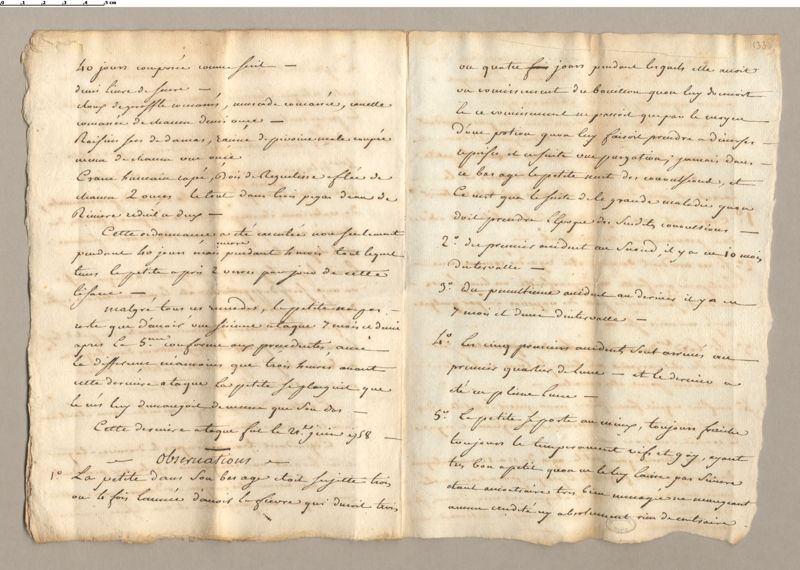 40 jours composée comme suit —
demi livre de sucre —
cloux de geroffle concassés, muscade concassée, canelle
concassée de chacun demi once —
Raisins secs de damas, racine de pivoine male coupée
menu de chacun une once
Crane humain rapé, Bois de Reguelisse effilée de
chacun 2 onces le tout dans trois pegas d'eau de
Riviere reduit a deux —
Cette ordonnance a été executée non seulement
pendant 40 jours mais encore pendant 4 mois tout lequel
tems la petite a pris 2 verres par jour de cette
tisane —
malgré tous ces remedes, la petite ne pas
reste que d'avoir une sixieme ataque 7 mois et demi
apres le 5eme conforme aux precedents, avec
la difference neanmoins que trois heures avant
cette derniere ataque la petite se plaignit que
le nés luy demangeoit de meme que son dos —
Cette derniere ataque fut le 21e juin 1758 —
observations
1° La petite dans son bas age etoit sujette trois
ou 4 fois l'année d'avoir la fievre qui duroit trois
133
ou quatre jours pendant lesquels elle avoit
un vomissement du bouillon quon luy donnoit
le ce vomissement ne passoit que par le moyen
d'une potion quon luy faisoit prendre a diverses
reprises, et ensuite une purgation; jamais dans
ce bas age la petite neut des convulsions, et
Ce n'est que la suite de la grande maladie quon
doit prendre l'Epoque des Susdites convulsions —
2° du premier accident au Second il y a eu 10 mois
d'intervalle —
3° Du penultieme accident au dernier il y a eu
7 mois et demi d'intervalle —
4° les cinq premiers accidents sont arrivés au
premier quartier de lune — et le dernier a
été en pleine lune —
5° La petite se porte au mieux, toujours fraiche
toujours le temperament vif et gay, ayant
tres bon apetit quon ne luy laisse pas suivre
etant au contraire tres bien menagée ne mangeant
aucune crudité ny absolument rien de contraire